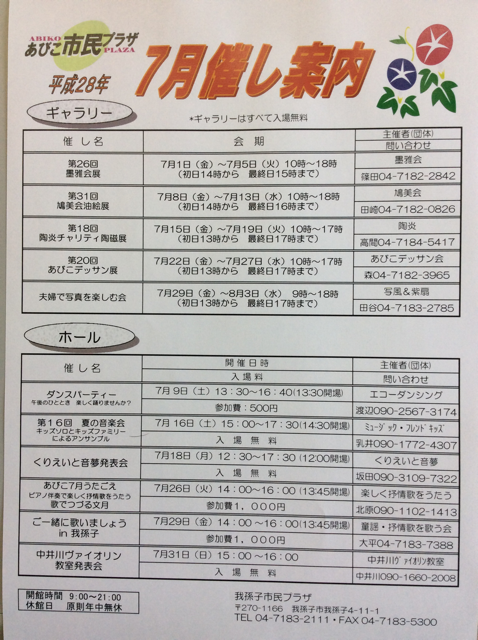 ABIKO
あびこ市民プラザ
PLAZA
平成28年
7月催し案内
ギャラリー
*ギャラリーはすべて入場無料
催し名
会期
主催者(団体)
問い合わせ
第26回
墨雅会展
7月1日（金）～7月5日（火）10時～18時
（初日14時から 最終日15時まで）
墨雅会
篠田04-7182-2842
第31回
鳩美会油絵展
7月8日（金）～7月13日（水）10時～18時
（初日14時から 最終日16時まで）
鳩美会
田崎04-7182-0826
第18回
陶炎チャリティ陶磁展
7月15日（金）～7月19日（火）10時～17時
（初日13時から 最終日17時まで）
陶炎
高間04-7184-5417
第20回
あびこデッサン展
7月22日（金）～7月27日（水）10時～17時
（初日13時から 最終日17時まで）
あびこデッサン会
森04-7182-3965
夫婦で写真を楽しむ会
7月29日（金）～8月3日（水） 9時～18時
（初日13時から 最終日17時まで）
写風＆紫扇
田谷04-7183-2785
ホール
催し名
開催日時
入場料
主催者(団体)
問い合わせ
ダンスパーティー
午後のひととき 楽しく踊りませんか?
7月9日（土）13：30～16：40(13:30開場)
参加費：500円
エコーダンシング
渡辺090-2567-3174
第16回 夏の音楽会
キッズソロとキッズファミリー
によるアンサンブル
7月16日（土）15：00～17：30(14:30開場)
入場 無料
ミュージック・フレンドキッズ
乳井090-1772-4307
くりえいと音夢発表会
7月18日(月) 12：30～17：30 (12:00開場)
入場 無料
くりえいと音夢
坂田090-3109-7322
あびこ7月うたごえ
ピアノ伴奏で楽しく抒情歌をうたう
歌でつづる文月
7月26日（火）14：00～16：00(13:45開場)
参加費1，000円
楽しく抒情歌をうたう
北原090-1102-1413
ご一緒に歌いましょう
in 我孫子
7月29日（金）14：00～16：00(13:30開場)
参加費1，000円
童謡・抒情歌を歌う会
大平04-7183-7388
中井川ヴァイオリン
教室発表会
7月31日（日）15：00～16：00
入場 無料
中井川ヴァイオリン教室
中井川090-1660-2008
開館時間 9:00～21:00
休館日 原則年中無休
我孫子市民プラザ
〒270-1166 我孫子市我孫子4-11-1
TEL 04-7183-2111・FAX 04-7183-5300